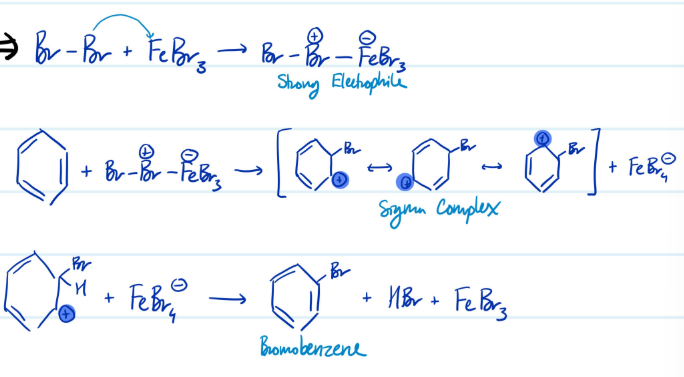 ⇒ Br – Br + FeBr₃ → Br – Br⊕ – FeBr₃⊖
Strong Electrophile
+ Br – Br⊕ – FeBr₃⊖ → [ Br ⊕ ↔ Br ⊕ ↔ Br ⊕ ] + FeBr₄⊖
Sigma Complex
Br H ⊕ + FeBr₄⊖ → Br + HBr + FeBr₃
Bromobenzene